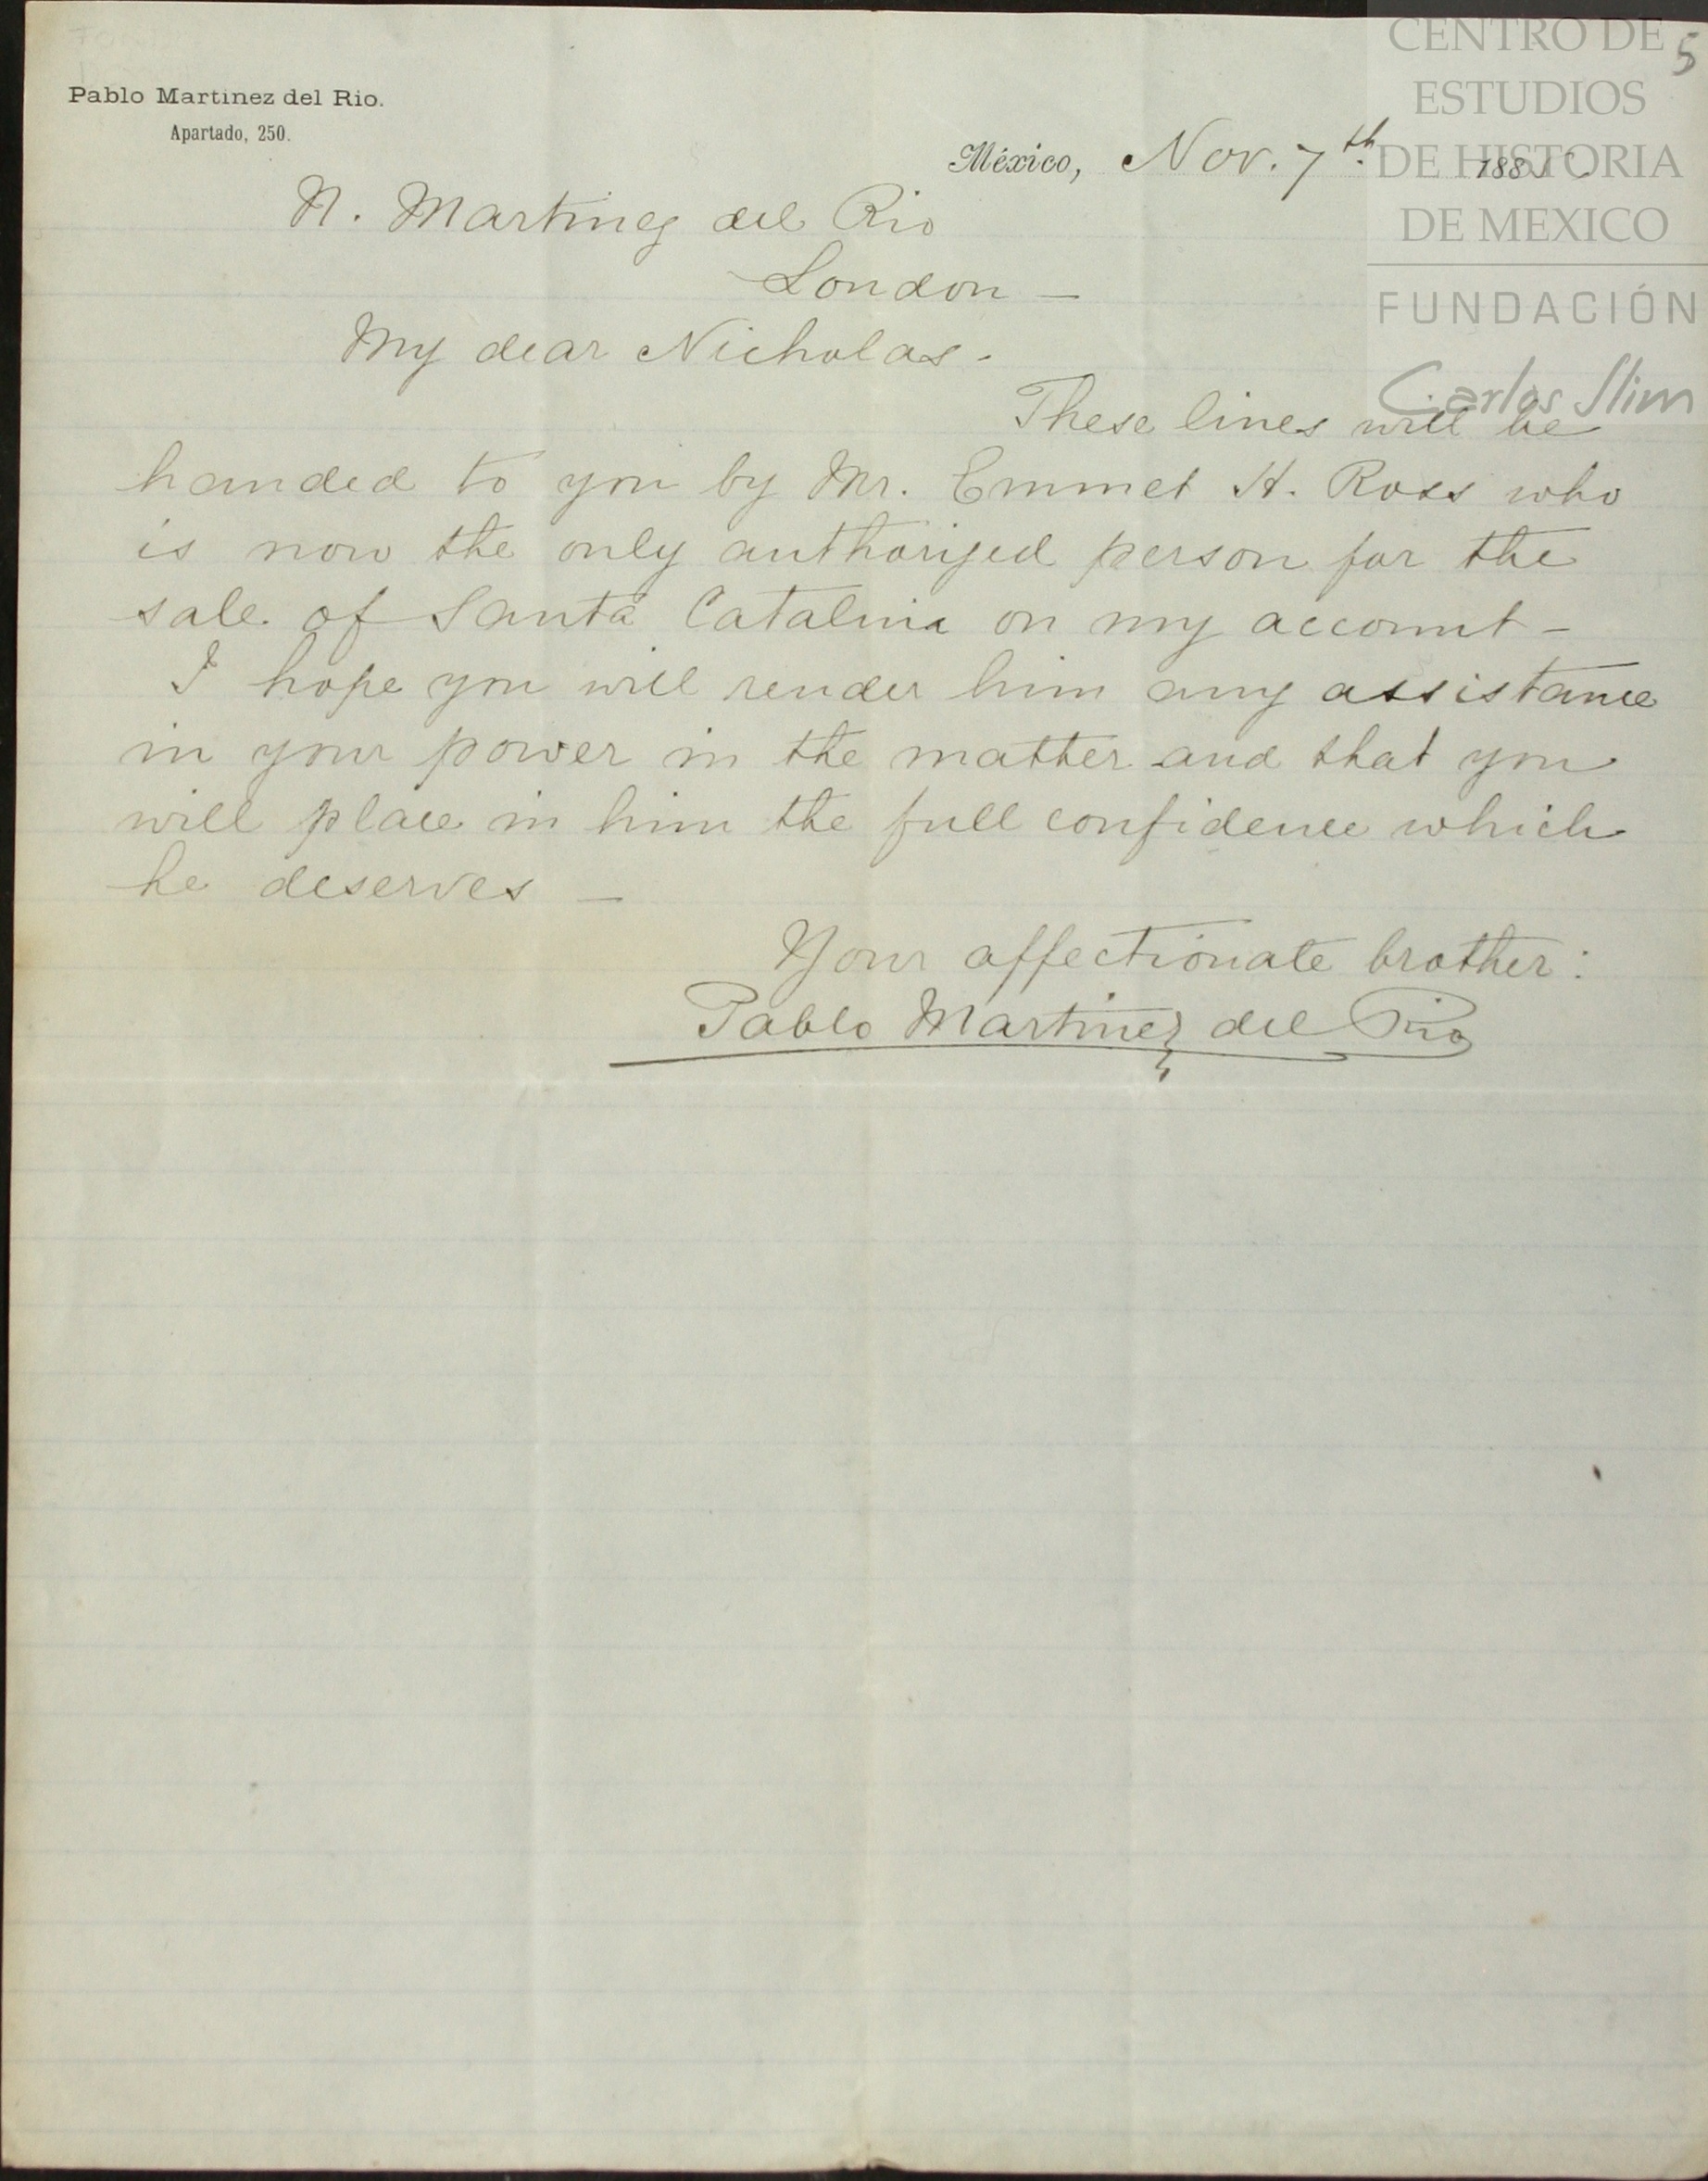 CENTRO DE
ESTUDIOS
DE HISTORIA
DE MEXICO
FUNDACIÓN
Carlos Slim
5
Pablo Martinez del Rio.
Apartado, 250.
México, Nov. 7th. 188
N. Martinez del Rio
London —
My dear Nicholas.
These lines will be
handed to you by Mr. Emmet H. Ross who
is now the only authorized person for the
sale of Santa Catalina on my account —
I hope you will render him any assistance
in your power in the matter and that you
will place in him the full confidence which
he deserves —
Your affectionate brother:
Pablo Martinez del Rio